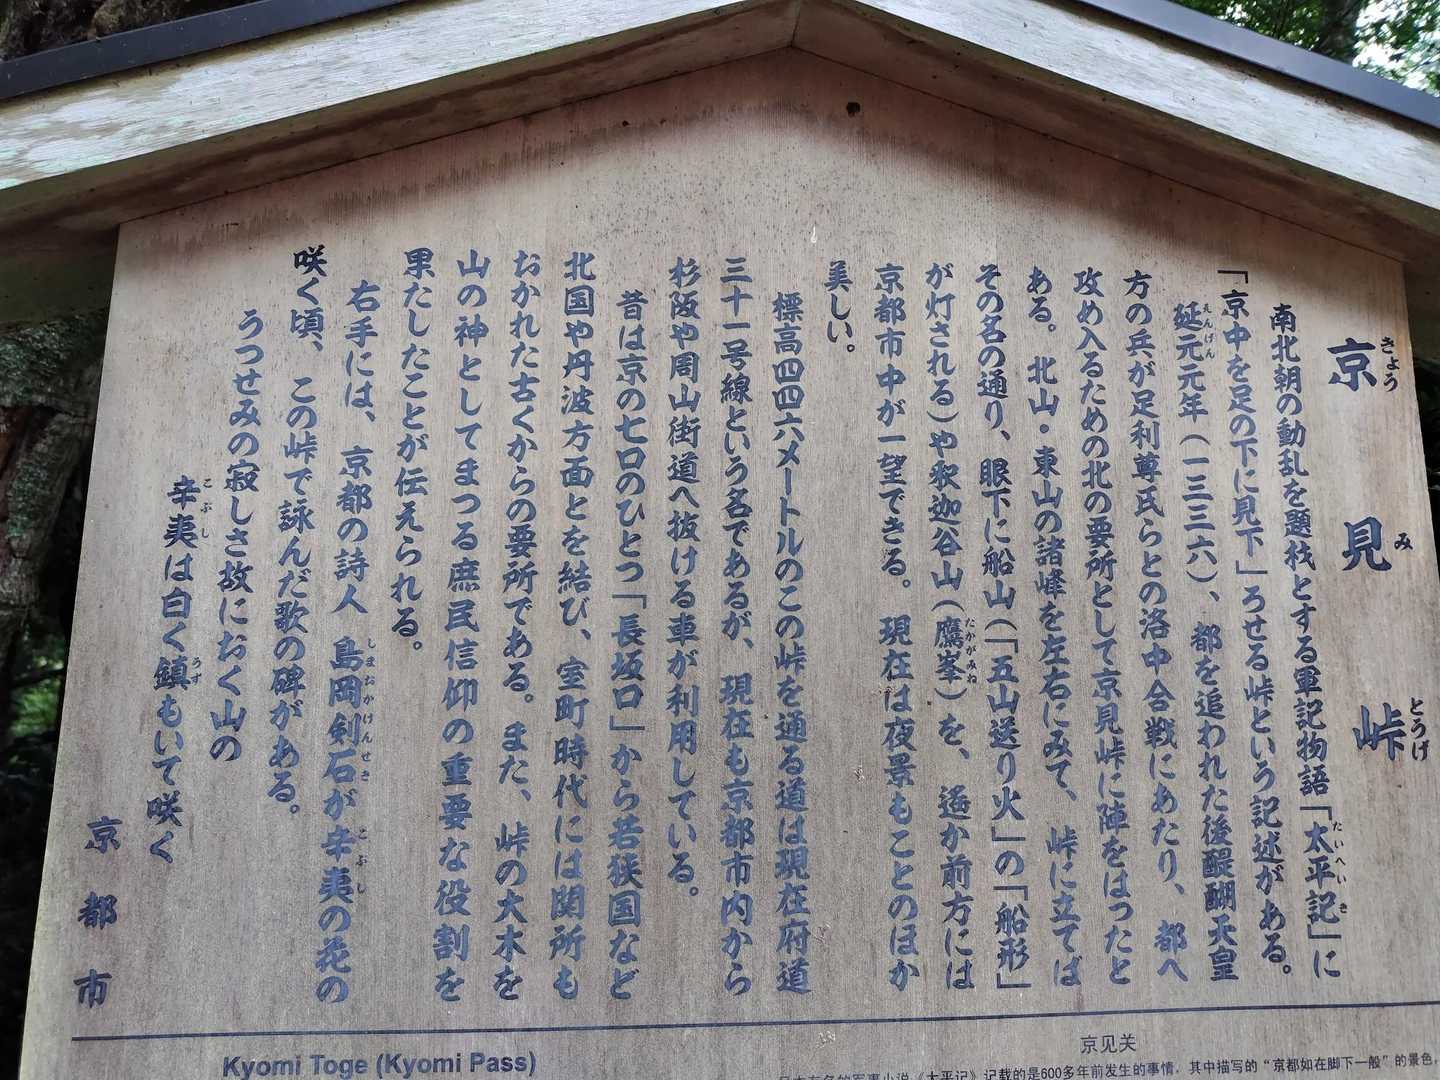 京見峠
きょうみとうげ
南北朝の動乱を題材とする軍記物語「太平記」に
たいへいき
「京中を足の下に見下」ろせる峠という記述がある。
延元元年(一三三六)、都を追われた後醍醐天皇
えんげん
方の兵が足利尊氏らとの洛中合戦にあたり、都へ
攻め入るための北の要所として京見峠に陣をはったと
ある。北山・東山の諸峰を左右にみて、峠に立てば
その名の通り、眼下に船山(「五山送り火」の「船形」
が灯される)や釈迦谷山(鷹峯)を、遙か前方には
たかがみね
京都市中が一望できる。現在は夜景もことのほか
美しい。
標高四四六メートルのこの峠を通る道は現在府道
三十一号線という名であるが、現在も京都市内から
杉阪や周山街道へ抜ける車が利用している。
昔は京の七口のひとつ「長坂口」から若狭国など
北国や丹波方面とを結び、室町時代には関所も
おかれた古くからの要所である。また、峠の大木を
山の神としてまつる庶民信仰の重要な役割を
果たしたことが伝えられる。
右手には、京都の詩人 島岡剣石が辛夷の花の
しまおかけんせき こぶし
咲く頃、この峠で詠んだ歌の碑がある。
うつせみの寂しさ故におく山の
辛夷は白く鎮もいて咲く
こぶし うず
京都市
Kyomi Toge (Kyomi Pass)
京见关
《太平记》记载的是600多年前发生的事情，其中描写的“京都如在脚下一般”的景色，